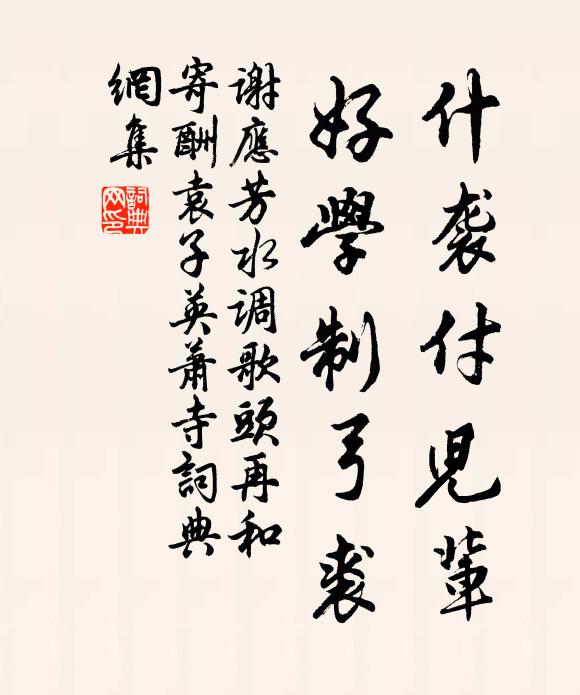 什袭付兒輩
好學制弓裘
謝應芳水調歌頭再和
寄酬袁子英蕭寺詞典
網集
詞典
网印